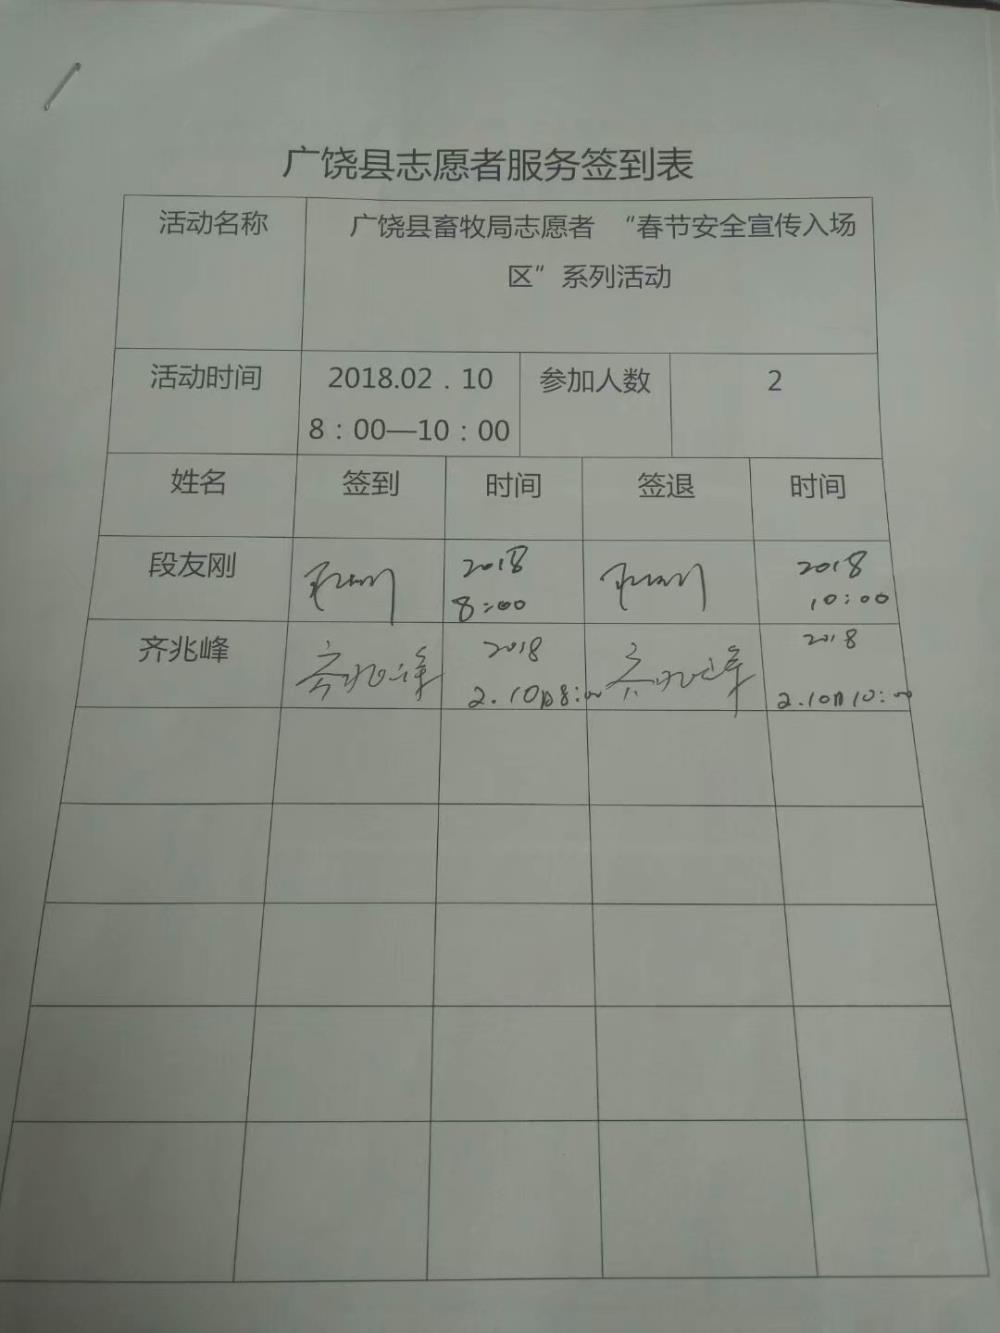 广饶县志愿者服务签到表
活动名称 广饶县畜牧局志愿者 “春节安全宣传入场
区”系列活动
活动时间 2018.02．10 参加人数 2
8：00—10：00
姓名 签到 时间 签退 时间
段友刚 2018 2018
8:00 10:00
齐兆峰 齐兆峰 2018 齐兆峰 2018
2.10日8:00 2.10日10:00